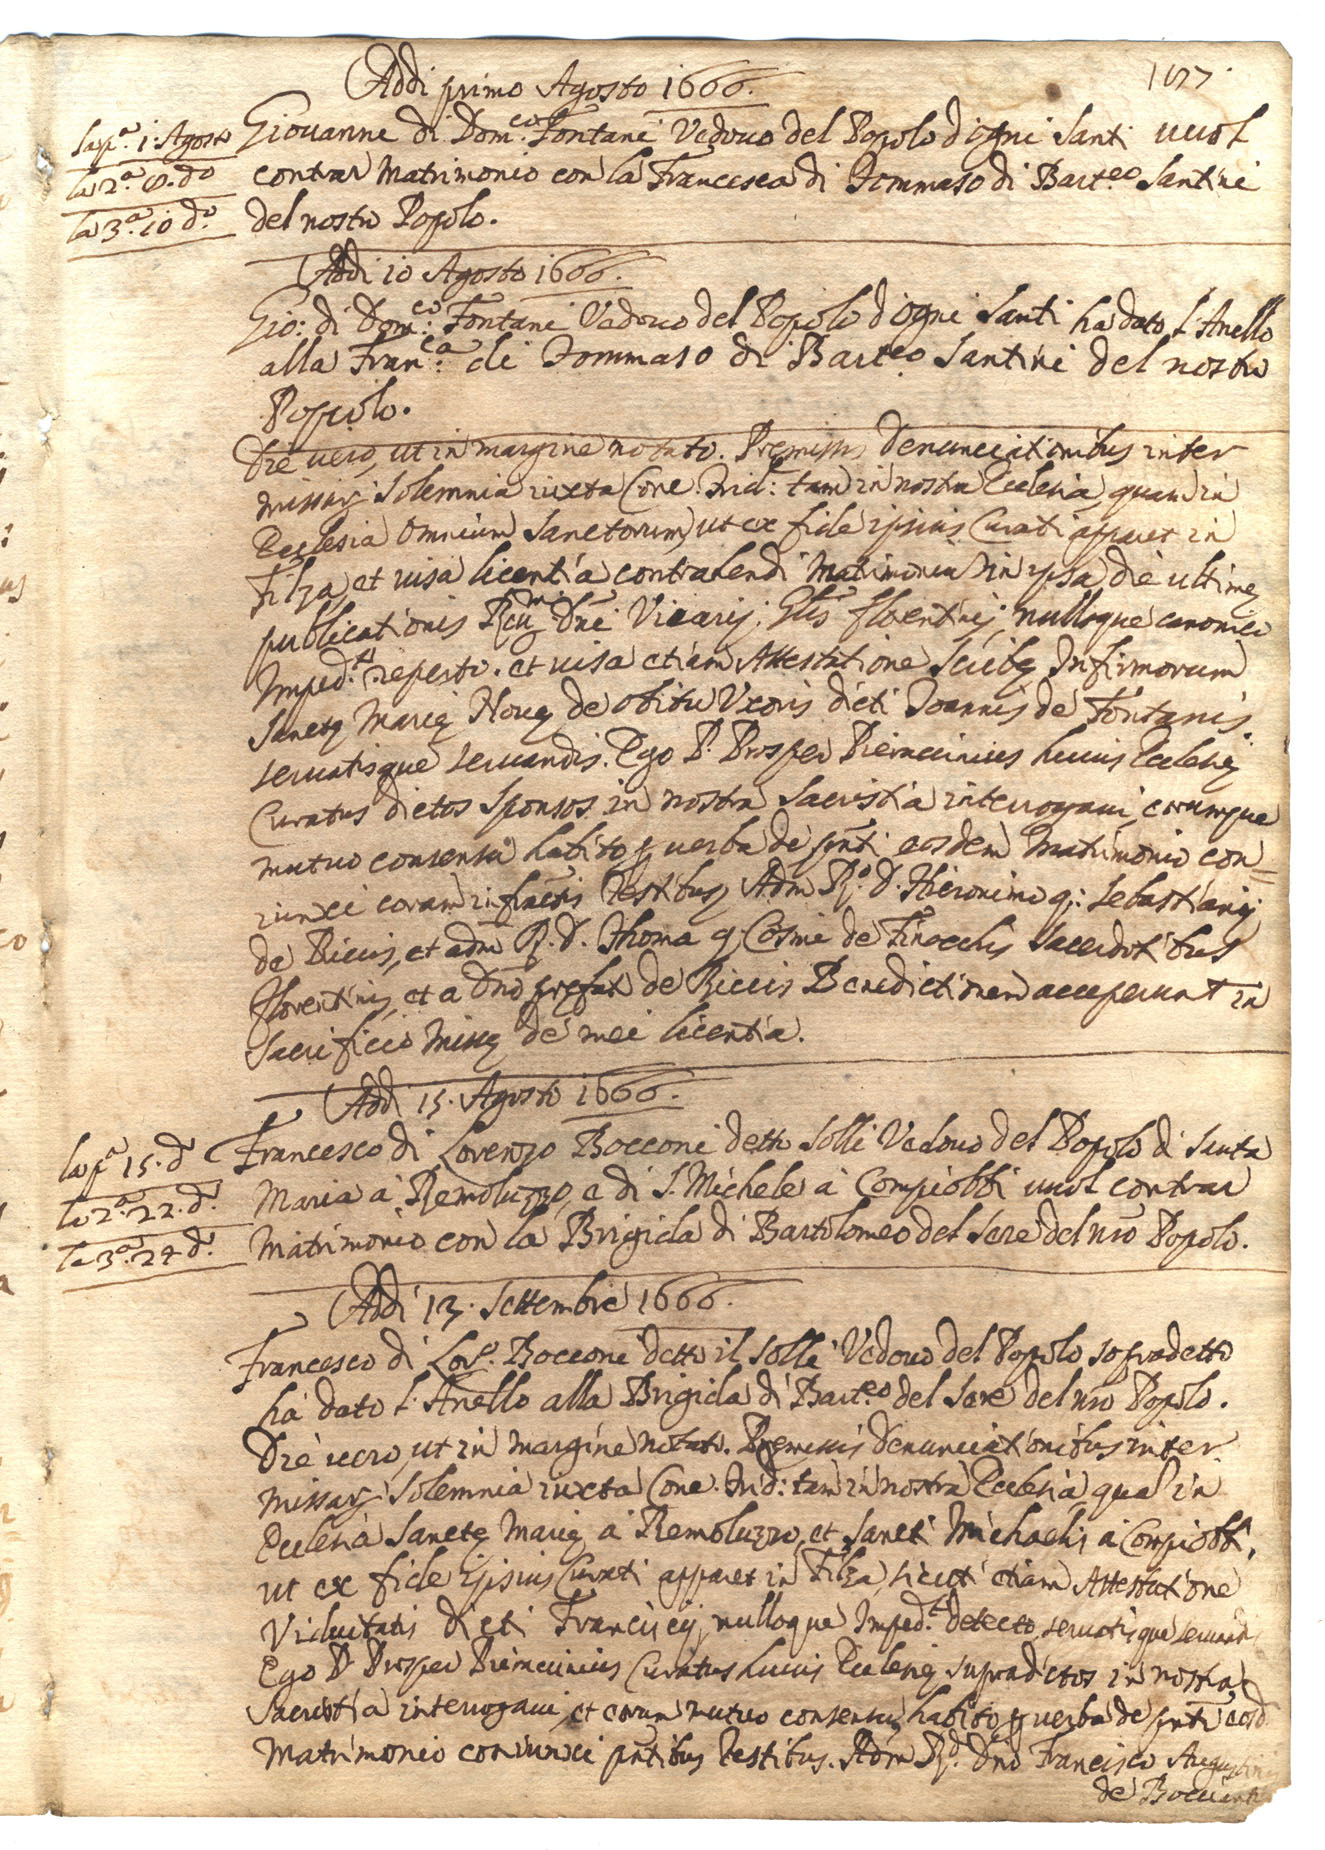 177
Addi primo Agosto 1666.
la p.a 1. Agosto
la 2.a 8. do
la 3.a 10 d.o
Giouanne di Dom.co Fontani Vedouo del Popolo d'ogni Santi uuol
contrar Matrimonio con la Francesca di Tommaso di Bart.eo Santini
del nostro Popolo.
Addi 10 Agosto 1666.
Gio: di Dom.co Fontani Vedouo del Popolo d'ogni Santi ha dato l'Anello
alla Fran.ca di Tommaso di Bart.eo Santini del nostro
Popolo.
Die uero, ut in margine notato. Premissis Denunciationibus inter
missar. Solemnia iuxta Conc. Trid: tam in nostra Ecclesia, quam in
Ecclesia Omnium Sanctorum, ut ex fide ipsius Curati apparet in
Filza, et uisa licentia contrahendi Matrimonium in ipsa die ultimę
publicationis R. Dni Vicarij Flis florentiej, nulloque canonico
Imped.to reperto. et uisa etiam Attestatione Scribę Infirmorum
Sanctę Marię Nouę de obitu Uxoris dicti Joannis de Fontanis.
seruatisque seruandis. Ego P. Prosper huius Ecclesię
Curatus dictos sponsos in nostra Sacristia interrogaui, eorumque
mutuo consensu habito p uerba de pnti eosdem Matrimonio con=
iunxi coram infractis Testibus Adm R.o D. Hieronimo q: Sebastiani
de Riccis, et adm R. D. Thoma q Cosmi de Finocchis Sacerdotibus
florentinis, et a Dno prefat de Riccis Benedictionem acceperunt in
Sacrificio Missę de mei licentia.
Addi 15. Agosto 1666.
la p.a 15. d.o
la 2.a 22. d.o
la 3.a 24 d.o
Francesco di Lorenzo Bocconi detto Solli Vedouo del Popolo di Santa
Maria à Remoluzzo, e di S. Michele à Compiobbi uuol contrar
Matrimonio con la Brigida di Bartolomeo del Sere del nro Popolo.
Addi 13. Settembre 1666.
Francesco di Lor.o Bocconi detto il Solli Vedouo del Popolo sopradetto
ha dato l'Anello alla Brigida di Bart.eo del Sere del nro Popolo.
Die uero, ut in margine notato. Premissis Denunciationibus inter
missar. Solemnia iuxta Conc. Trid: tam in nostra Ecclesia, qua in
Ecclesia Sanctę Marię à Remoluzzo, et Sancti Michaelis à Compiobbi,
ut ex fide ipsius Curati apparet in Filza, sicuti etiam Attestatione
Viduitatis dicti Francisci, nulloque Imped.to detecto, seruatisque seruandis
Ego P. Prosper Curatus huius Ecclesię supradictos in nostra
Sacristia interrogaui, et eorum mutuo consensu habito p uerba de pnti eosd.
Matrimonio coniunxi pntibus Testibus. Adm R.do Dno Francisco Augustini
de